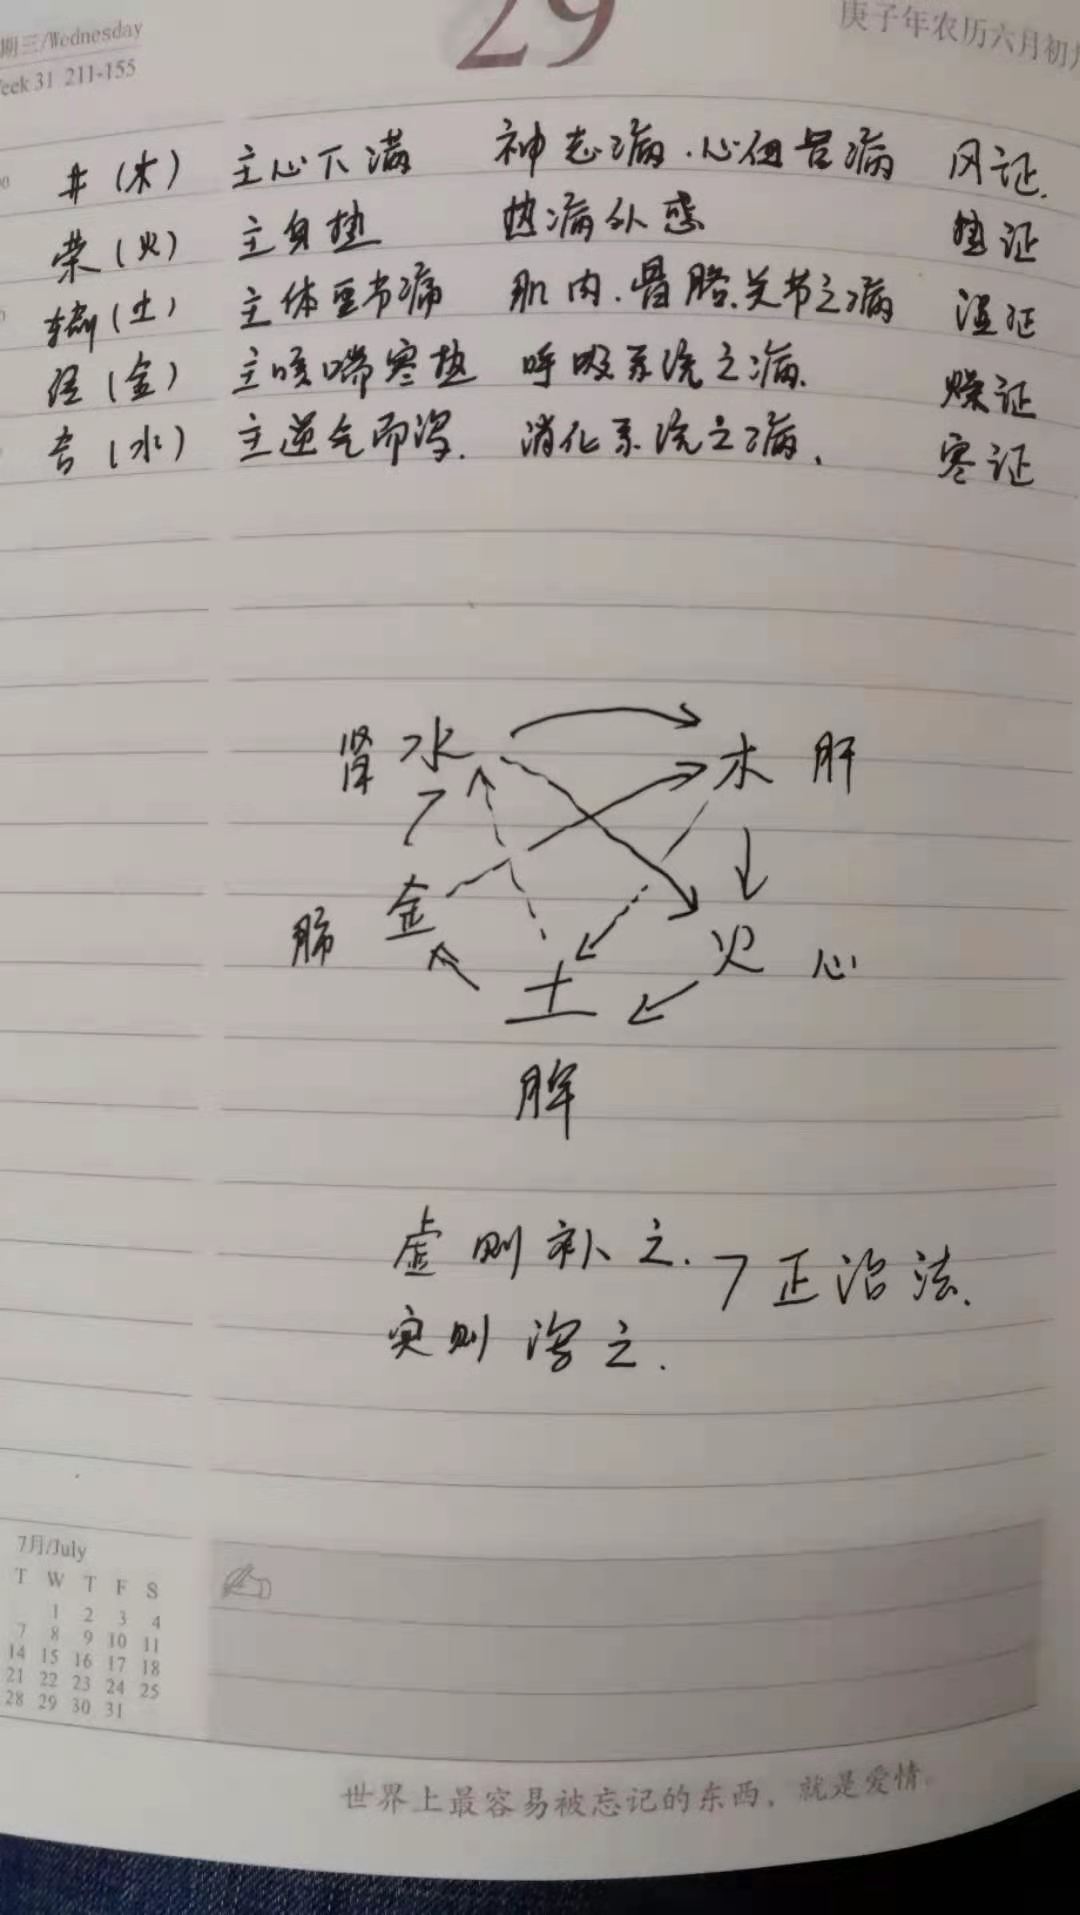 期三/Wednesday
29
庚子年农历六月初
Week 31 211-155
井(木) 主心下满 神志病.心包络病 风证.
荥(火) 主身热 热病外感 热证
输(土) 主体重节痛 肌肉.骨骼.关节之病 湿证
经(金) 主咳喘寒热 呼吸系统之病. 燥证
合(水) 主逆气而泻. 消化系统之病、 寒证
肾 水 木 肝
肺 金 火 心
土
脾
虚则补之. 正治法.
实则泻之.
7月/July
T W T F S
1 2 3 4
7 8 9 10 11
14 15 16 17 18
21 22 23 24 25
28 29 30 31
世界上最容易被忘记的东西，就是爱情。